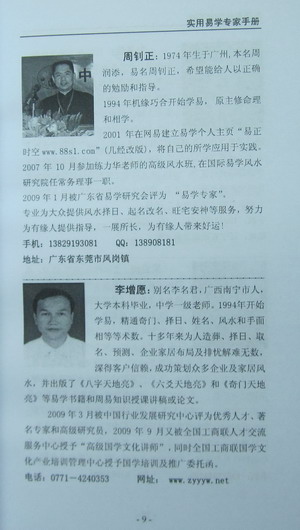 实用易学专家手册
周钊正：1974年生于广州,本名周
润添，易名周钊正，希望能给人以正确
的勉励和指导。
1994年机缘巧合开始学易，原主修命理
和相学。
2001 年在网易建立易学个人主页“易正
时空 www.88s1.com”(几经改版)，将自己的所学应用于实践。
2007 年 10 月参加练力华老师的高级风水班,在国际易学风水
研究院任常务理事一职。
2009 年 1 月被广东省易学研究会评为 “易学专家”。
专业为大众提供风水择日、起名改名、旺宅安神等服务，努力
为有缘人提供指导，一展所长、为有缘人带来好运!
手机：13829193081 QQ：138908181
地址：广东省东莞市凤岗镇
李增愿：别名李名君，广西南宁市人，
大学本科毕业，中学一级老师。1994年开始
学易，精通奇门、择日、姓名，风水和手面
相等等术数。十多年来为人造葬、择日、取
名、预测、企业家居布局及排忧解难无数，
深得客户信赖，成功策划众多企业及家居风
水。并出版了《八字天地亮》、《六爻天地亮》和《奇门天地
亮》等易学书籍和周易知识授课讲稿或论文。
2009 年 3 月被中国行业发展研究中心评为优秀人才、著
名专家和高级研究员，2009 年 9 月又被全国工商联人才交流
服务中心授予“高级国学文化讲师”,同时全国工商联国学文
化产业培训管理中心授予国学培训及推广委托函。
电话：0771-4240353 网址： www.zyyyw.net
- 9 -